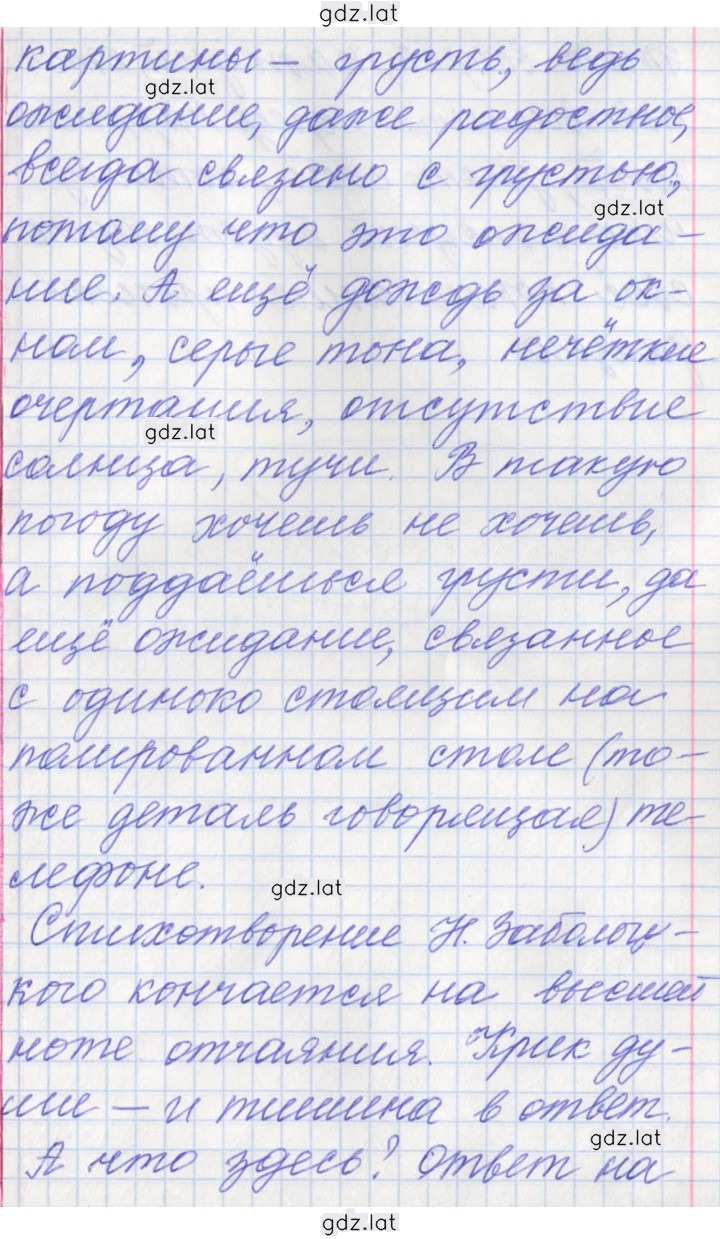 gdz.lat
картины — грусть, ведь
gdz.lat
ожидание, даже радостное,
всегда связано с грустью,
gdz.lat
потому что это ожида-
ние. А ещё дождь за ок-
ном, серые тона, нечёткие
очертания, отсутствие
gdz.lat
солнца, тучи. В такую
погоду хочешь не хочешь,
а поддаёшься грусти, да
ещё ожидание, связанное
с одиноко стоящим на
полированном столе (то-
же деталь говорящая) те-
лефоне.
gdz.lat
Стихотворение Н. Заболоц-
кого кончается на высшей
ноте отчаяния. Крик ду-
ши — и тишина в ответ.
gdz.lat
А что здесь? Ответ на
gdz.lat